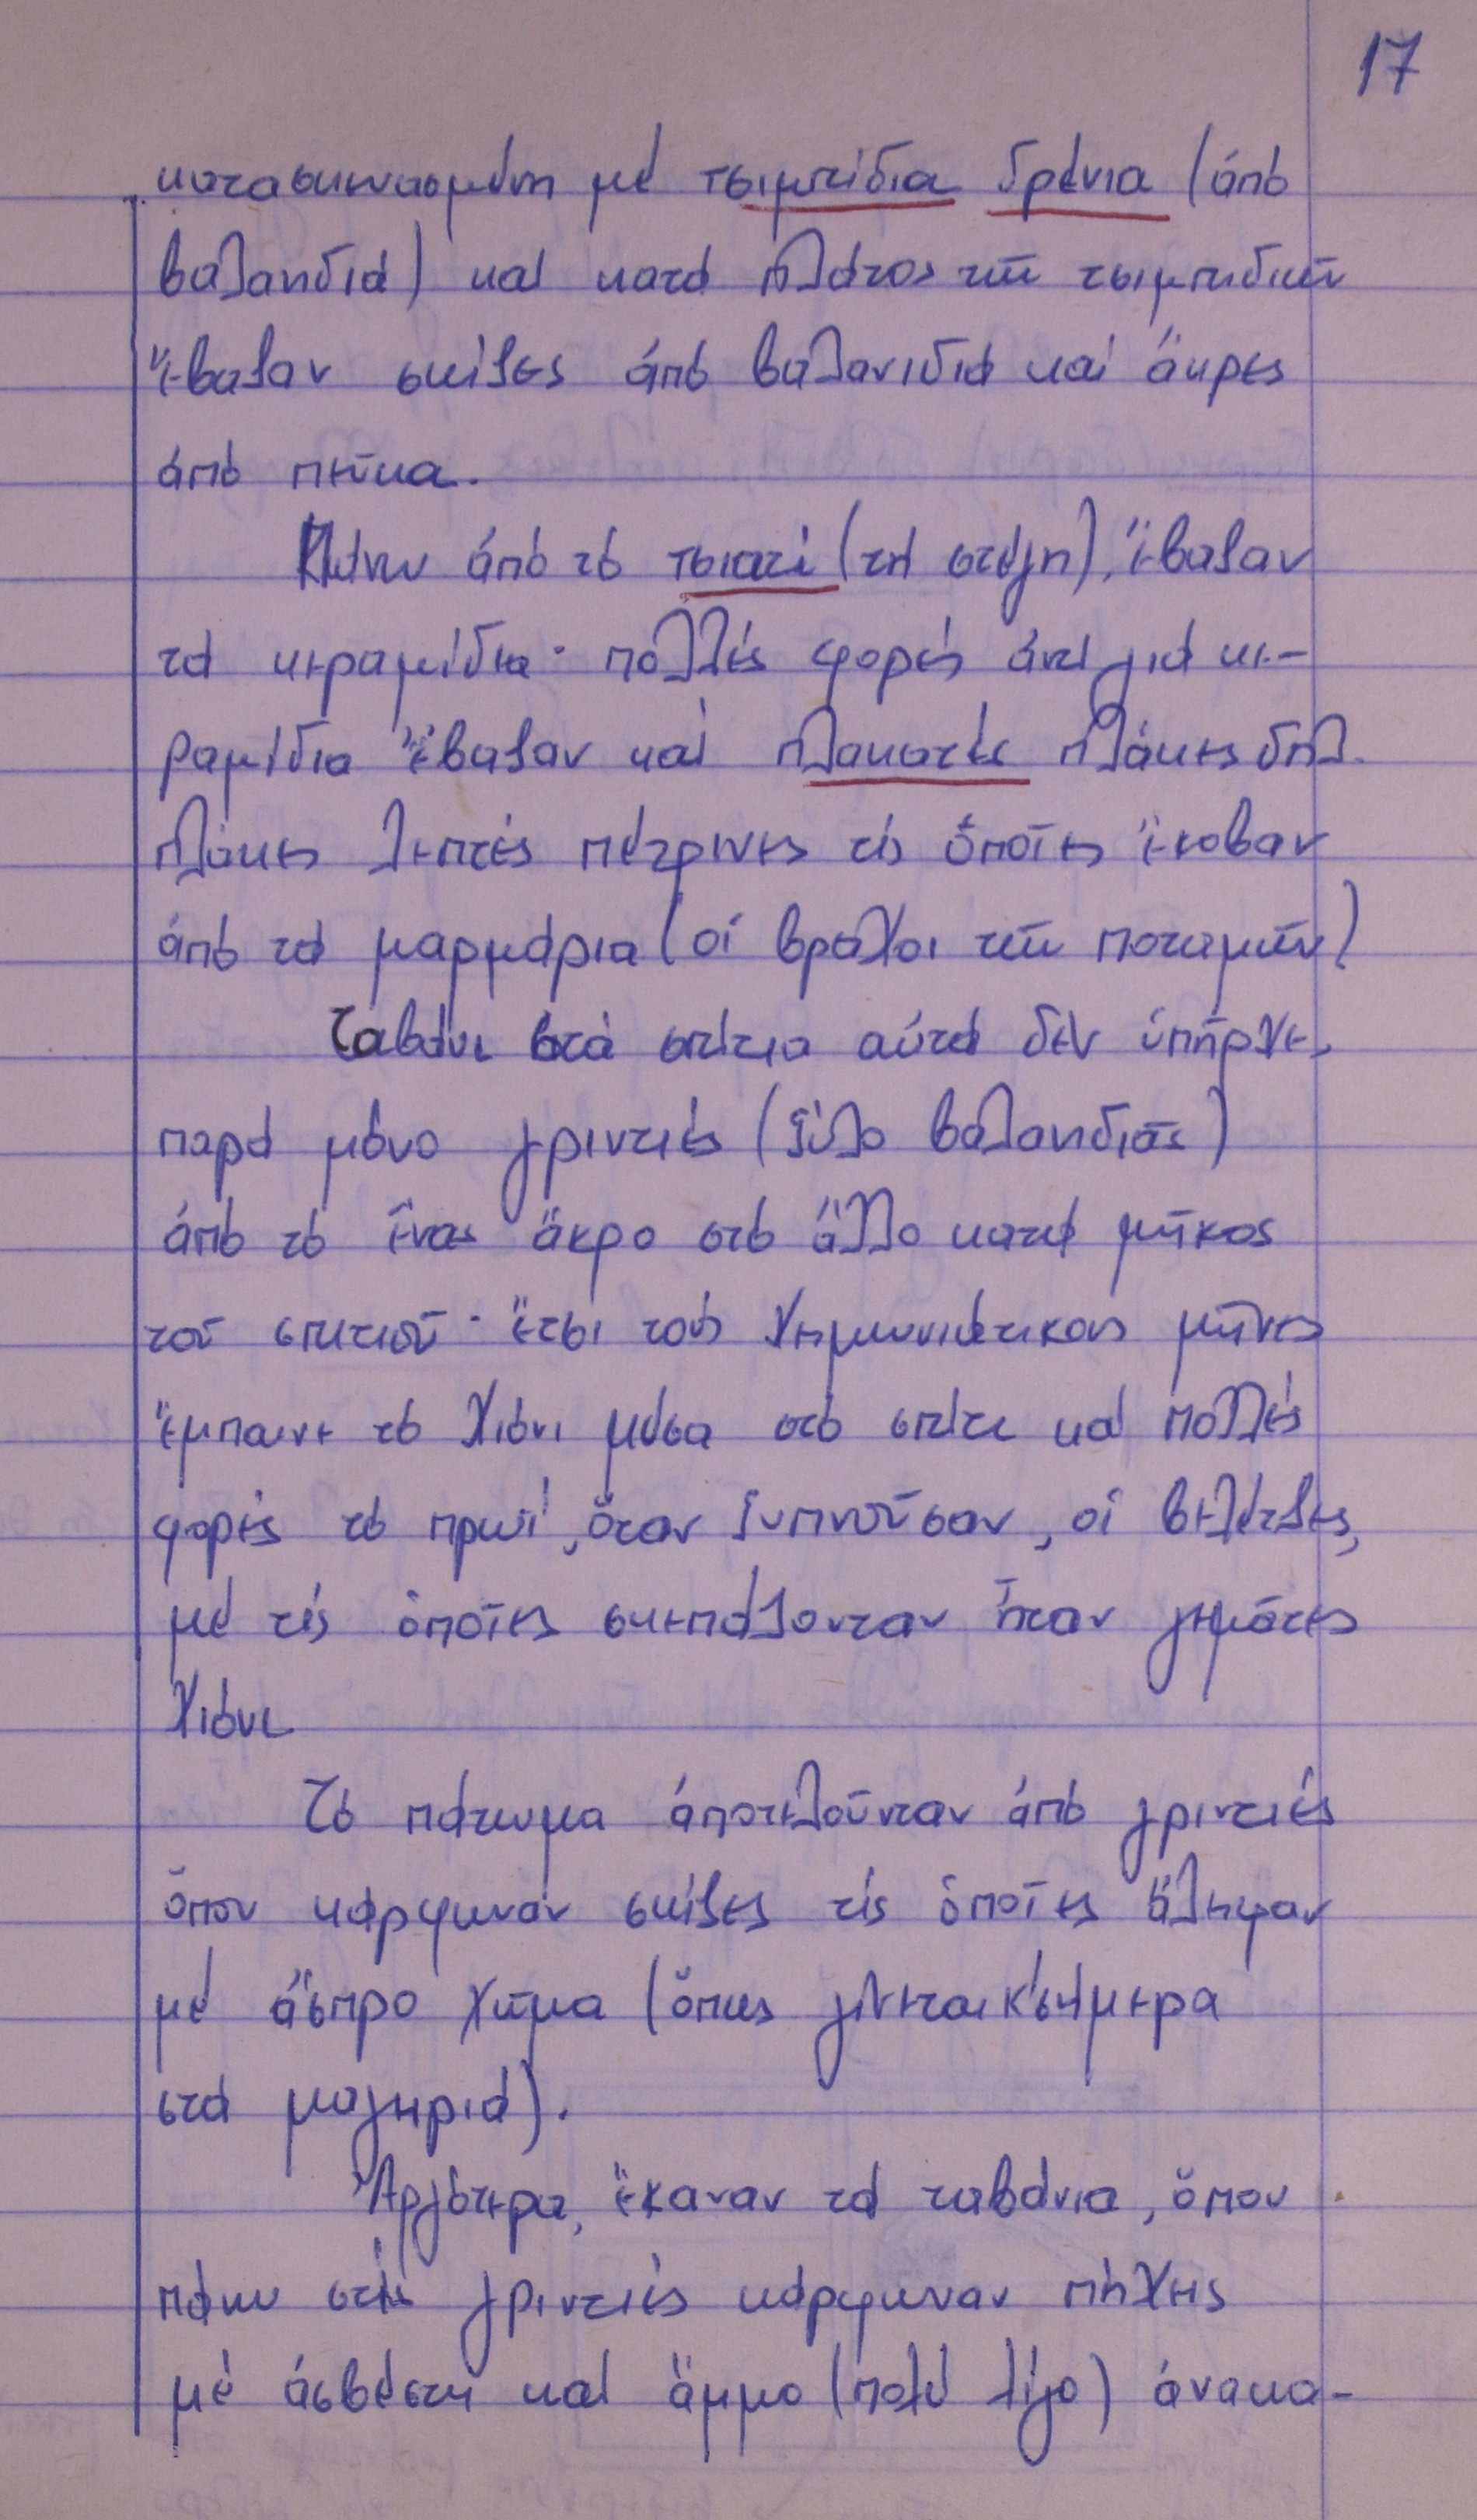 17
κατασκευασμένη μέ τσιμπίδια δρένια (ἀπό
βαλανιδιά) καί κατά πλάτος τῶν τσιμπιδιῶν
ἔβαζαν σκίζες ἀπό βαλανιδιά καί ἄκρες
ἀπό πεῦκα.
Πάνω ἀπό τό τσιατί (τή στέγη), ἔβαζαν
τά κεραμίδια· πολλές φορές ἀντί γιά κε-
ραμίδια ἔβαζαν καί πλακατές πλάκες δηλ.
πλάκες λεπτές πέτρινες τίς ὁποῖες ἔκοβαν
ἀπό τά μαρμάρια (οἱ βράχοι τῶν ποταμῶν)
Ταβάνι στά σπίτια αὐτά δέν ὑπῆρχε,
παρά μόνο γριντιές (ξύλο βαλανιδιᾶς)
ἀπό τό ἕνα ἄκρο στό ἄλλο κατά μῆκος
τοῦ σπιτιοῦ· ἔτσι τούς χειμωνιάτικους μῆνες
ἔμπαινε τό χιόνι μέσα στό σπίτι καί πολλές
φορές τό πρωί, ὅταν ξυπνοῦσαν, οἱ βελέτζες,
μέ τίς ὁποῖες σκεπάζονταν ἦταν γεμάτες
χιόνι
Τό πάτωμα ἀποτελοῦνταν ἀπό γριντιές
ὅπου κάρφωναν σκίζες τίς ὁποῖες ἄλειφαν
μέ ἄσπρο χῶμα (ὅπως γίνεται κ' σήμερα
στά μαγειριά).
Ἀργότερα, ἔκαναν τά ταβάνια, ὅπου
πάνω στίς γριντιές κάρφωναν πήχεις
μέ ἀσβέστη καί ἄμμο (πολύ λίγο) ἀνακα-